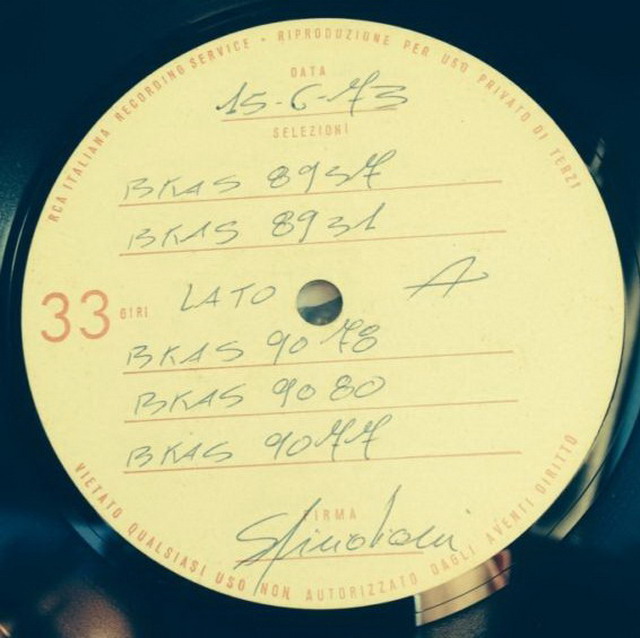 RCA ITALIANA RECORDING SERVICE - RIPRODUZIONE PER USO PRIVATO DI TERZI
DATA
15-6-73
SELEZIONI
BKAS 8937
BKAS 8931
33 GIRI LATO A
BKAS 9078
BKAS 9080
BKAS 9077
FIRMA
VIETATO QUALSIASI USO NON AUTORIZZATO DAGLI AVENTI DIRITTO